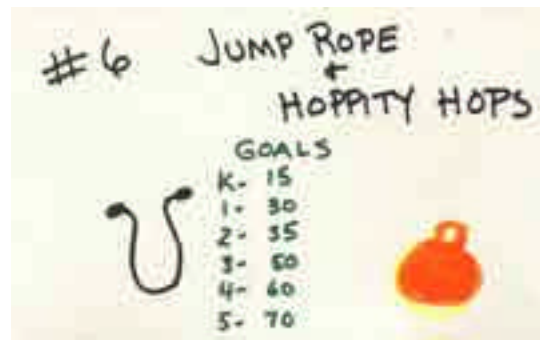 #6 JUMP ROPE
+
HOPPITY HOPS
GOALS
K- 15
1- 30
2- 35
3- 50
4- 60
5- 70